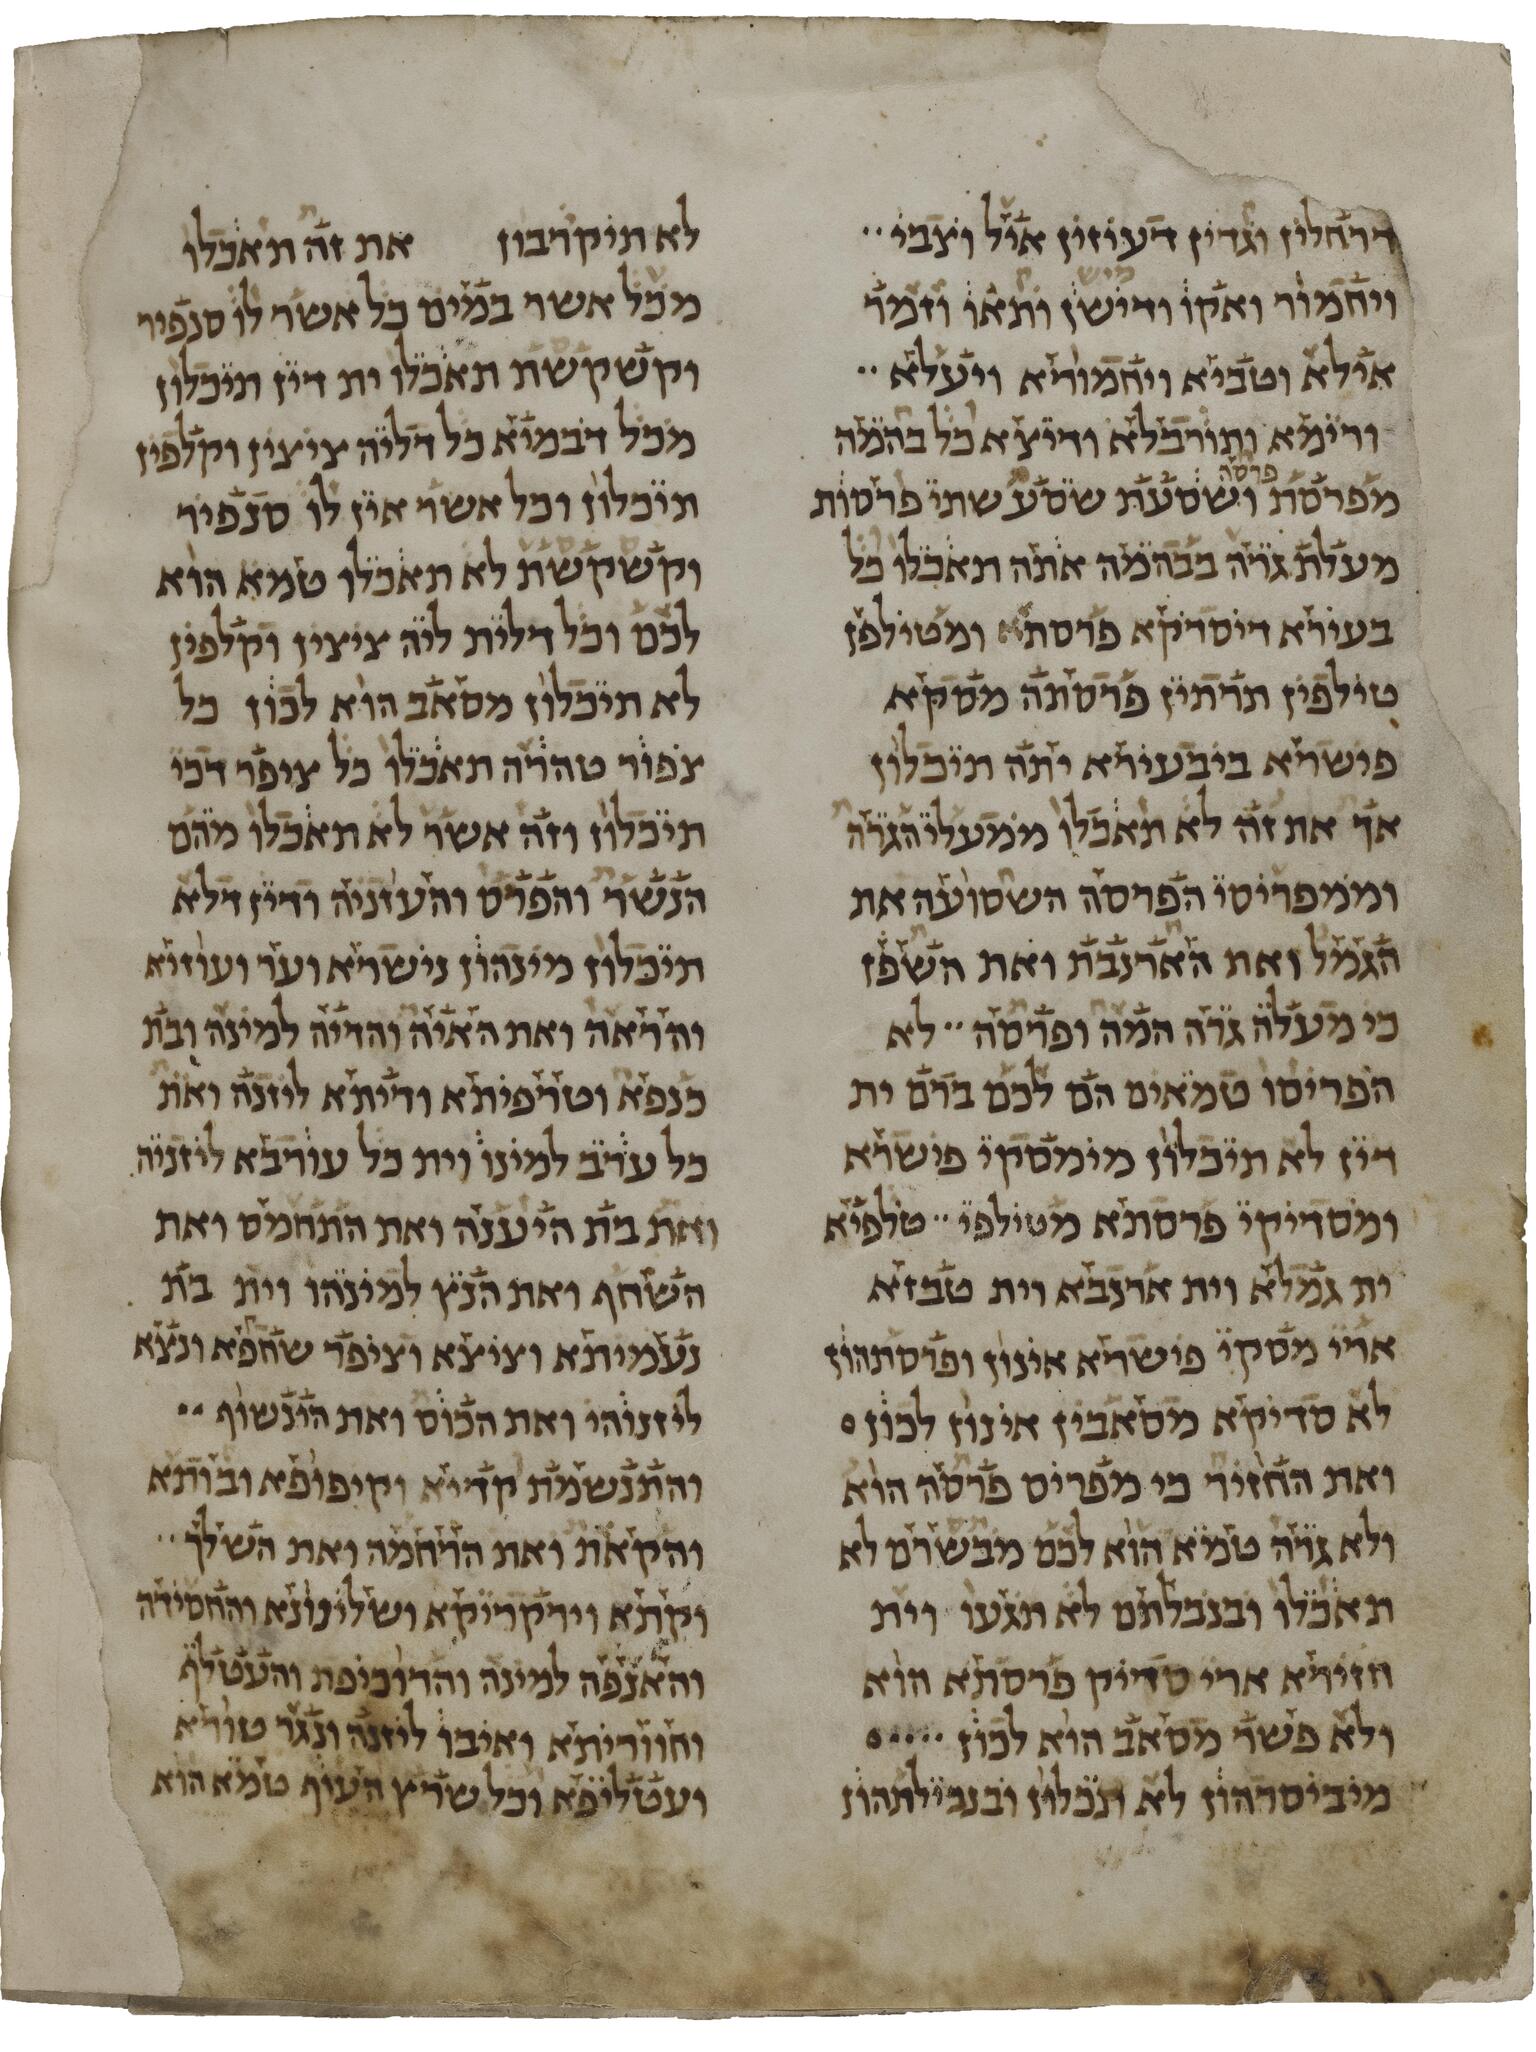 דרחלין וגדין דעיזין איל וצבי
ויחמור ואקו ודישן ותאו וזמר
אילא וטביא ויחמוריא ויעלא
ורימא ותורבלא ודיצא כל בהמה
מפרסת פרסה ושסעת שסע שתי פרסות
מעלת גרה בבהמה אתה תאכלו כל
בעירא דיסדקא פרסתא ומטילפן
טילפין תרתין פרסתה מסקא
פישרא ביבעירא יתה תיכלון
אך את זה לא תאכלו ממעלי הגרה
וממפריסי הפרסה השסועה את
הגמל ואת הארנבת ואת השפן
כי מעלה גרה המה ופרסה לא
הפריסו טמאים הם לכם ברם ית
דין לא תיכלון מימסקי פישרא
ומסדיקי פרסתא מטילפי טלפיא
ית גמלא וית ארנבא וית טבזא
ארי מסקי פישרא אינון ופרסתהון
לא סדיקא מסאבין אינון לכון
ואת החזיר כי מפריס פרסה הוא
ולא גרה טמא הוא לכם מבשרם לא
תאכלו ובנבלתם לא תגעו וית
חזירא ארי סדיק פרסתא הוא
ולא פשר מסאב הוא לכון
מיביסרהון לא תיכלון ובנבילתהון
לא תיקרבון את זה תאכלו
מכל אשר במים כל אשר לו סנפיר
וקשקשת תאכלו ית דין תיכלון
מכל דבמיא כל דליה ציצין וקלפין
תיכלון וכל אשר אין לו סנפיר
וקשקשת לא תאכלו טמא הוא
לכם וכל דלית ליה ציצין וקלפין
לא תיכלון מסאב הוא לכון כל
צפור טהרה תאכלו כל ציפר דכי
תיכלון וזה אשר לא תאכלו מהם
הנשר והפרס והעזניה ודין דלא
תיכלון מינהון נישרא וער ועוזיא
והראה ואת האיה והדיה למינה ובת
כנפא וטרפיתא ודיתא ליזנה ואת
כל ערב למינו וית כל עורבא ליזניה
ואת בת היענה ואת התחמס ואת
השחף ואת הנץ למינהו וית בת
נעמיתא וציצא וציפר שחפא ונצא
ליזנוהי ואת הכוס ואת הינשוף
והתנשמת קדיא וקיפופא ובותא
והקאת ואת הרחמה ואת השלך
וקתא וירקריקא ושלינונא והחסידה
והאנפה למינה והדוכיפת והעטלף
וחווריתא ואיבו ליזנה ונגר טורא
ועטליפא וכל שרץ העוף טמא הוא